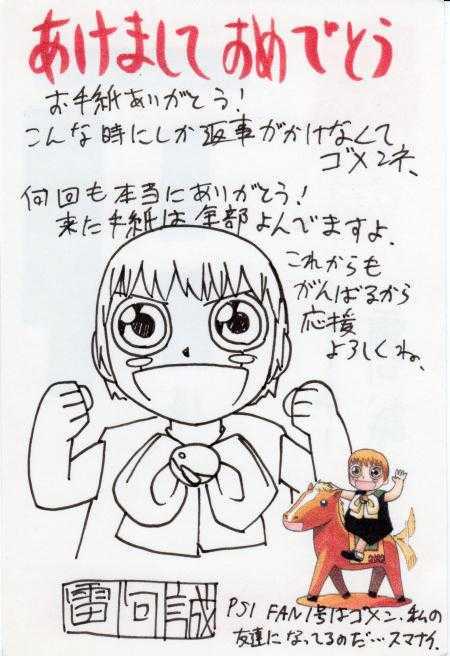 あけまして おめでとう
お手紙ありがとう!
こんな時にしか返事がかけなくて
ゴメンネ、
何回も本当にありがとう!
来た手紙は全部よんでますよ.
これからも
がんばるから
応援
よろしくね。
2002
雷句誠
PS1 FAN1号はゴメン、私の
友達になってるのだ…スマナイ.